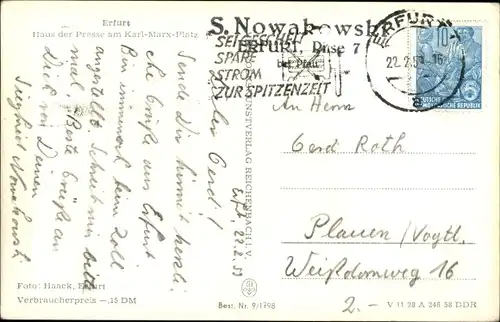 Erfurt
Haus der Presse am Karl-Marx-Platz
S. Nowakowski
ERFURT, Drose 7
bei Pfau
SEI GESCHEIT
SPARE
STROM
ZUR SPITZENZEIT
ERFURT
22.2.59-16
10
DEUTSCHE DEMOKRATISCHE REPUBLIK
Erft. 22.2.59
Lieber Gerd!
Sende Dir hiermit herzli-
che Grüße aus Erfurt
Bin immer noch beim Zoll
angestellt. Schreib mir bald
mal. Beste Grüße an
Dich von Deinem
Siegfried Nowakowski
KUNSTVERLAG REICHENBACH I. V.
An Herrn
Gerd Roth
Plauen/Vogtl.
Weißdornweg 16
2.-
Foto: Haack, Erfurt
Verbraucherpreis -,15 DM
Best. Nr. 9/1798
V 11 28 A 246 58 DDR